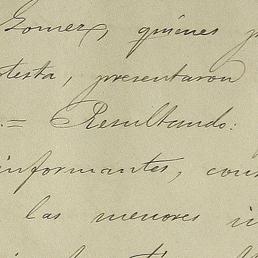 Gomez, quienes p
testa, presentaron
.= Resultando:
informantes, con
las menores i